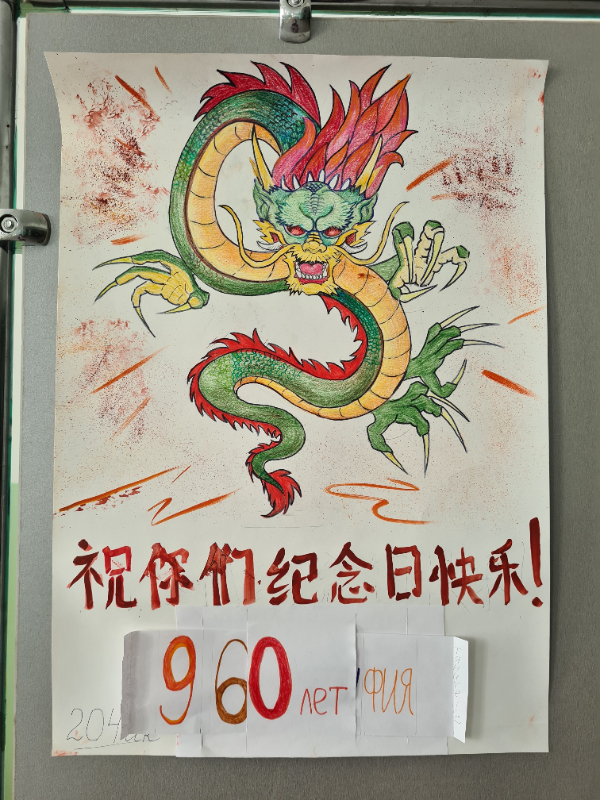 祝你们纪念日快乐!
960 лет ФИЯ
204